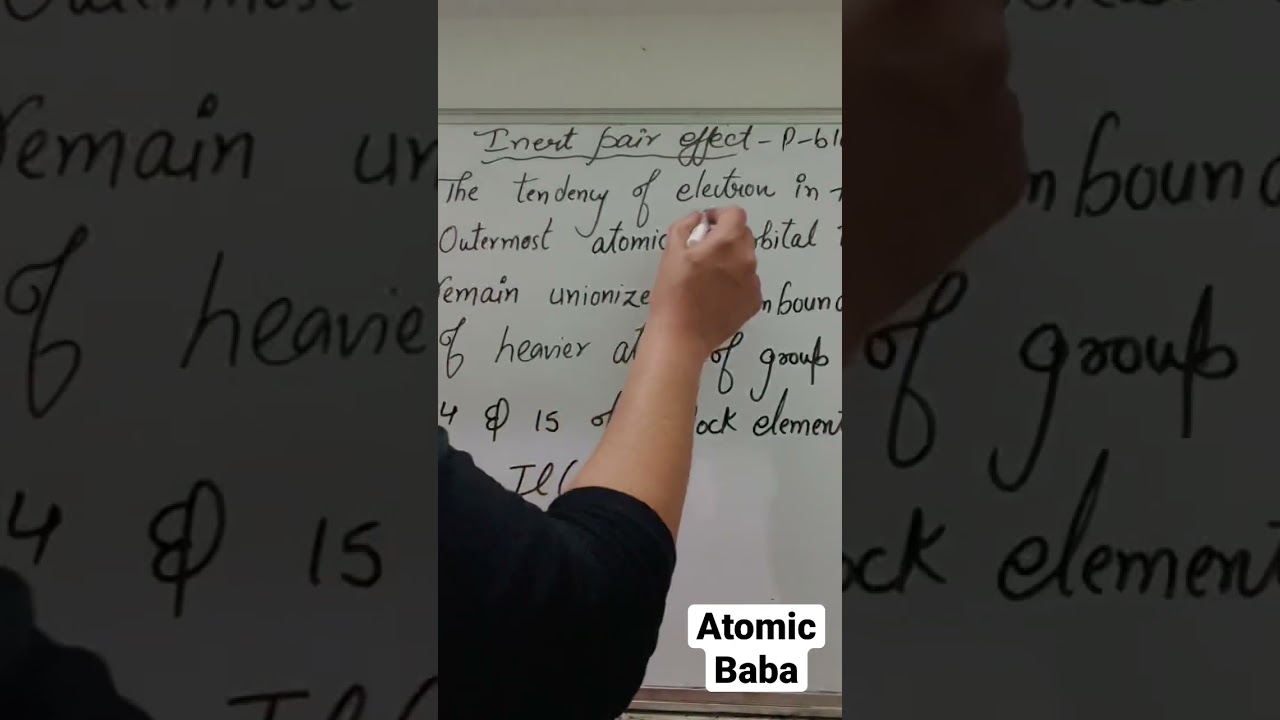 Inert pair effect - P-blo
The tendency of electron in
Outermost atomic orbital
remain unionize bound
of heavier at of group
4 & 15 of lock element
Tl(
Atomic
Baba